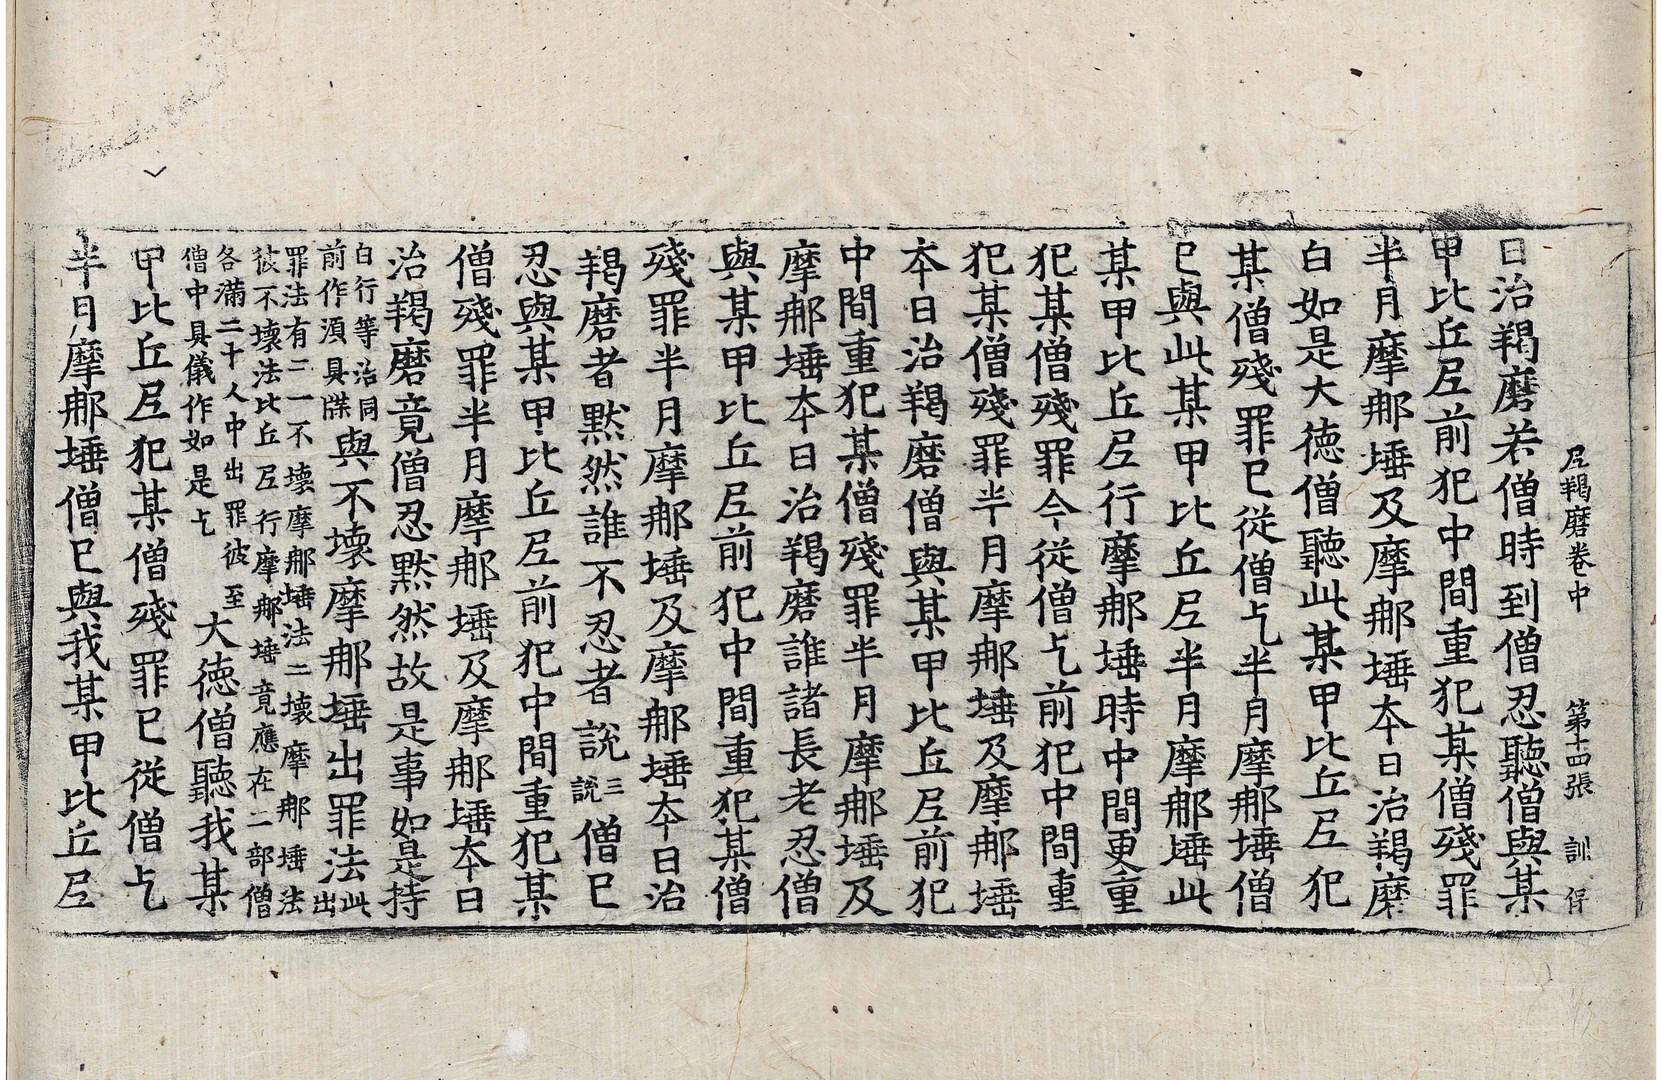 尼羯磨卷中 第十四張 訓
日治羯磨若僧時到僧忍聽僧與某
甲比丘尼前犯中間重犯某僧殘罪
半月摩那埵及摩那埵本日治羯磨
白如是大德僧聽此某甲比丘尼犯
某僧殘罪已從僧乞半月摩那埵僧
已與此某甲比丘尼半月摩那埵此
某甲比丘尼行摩那埵時中間更重
犯某僧殘罪今從僧乞前犯中間重
犯某僧殘罪半月摩那埵及摩那埵
本日治羯磨僧與某甲比丘尼前犯
中間重犯某僧殘罪半月摩那埵及
摩那埵本日治羯磨誰諸長老忍僧
與某甲比丘尼前犯中間重犯某僧
殘罪半月摩那埵及摩那埵本日治
羯磨者默然誰不忍者說三說僧已
忍與某甲比丘尼前犯中間重犯某
僧殘罪半月摩那埵及摩那埵本日
治羯磨竟僧忍默然故是事如是持
白行等治同前作須具牒與不壞摩那埵出罪法此出
罪法有二一不壞摩那埵法二壞摩那埵法
彼不壞法比丘尼行摩那埵竟應在二部僧
各滿二十人中出罪彼至僧中具儀作如是乞大德僧聽我某
甲比丘尼犯某僧殘罪已從僧乞
半月摩那埵僧已與我某甲比丘尼